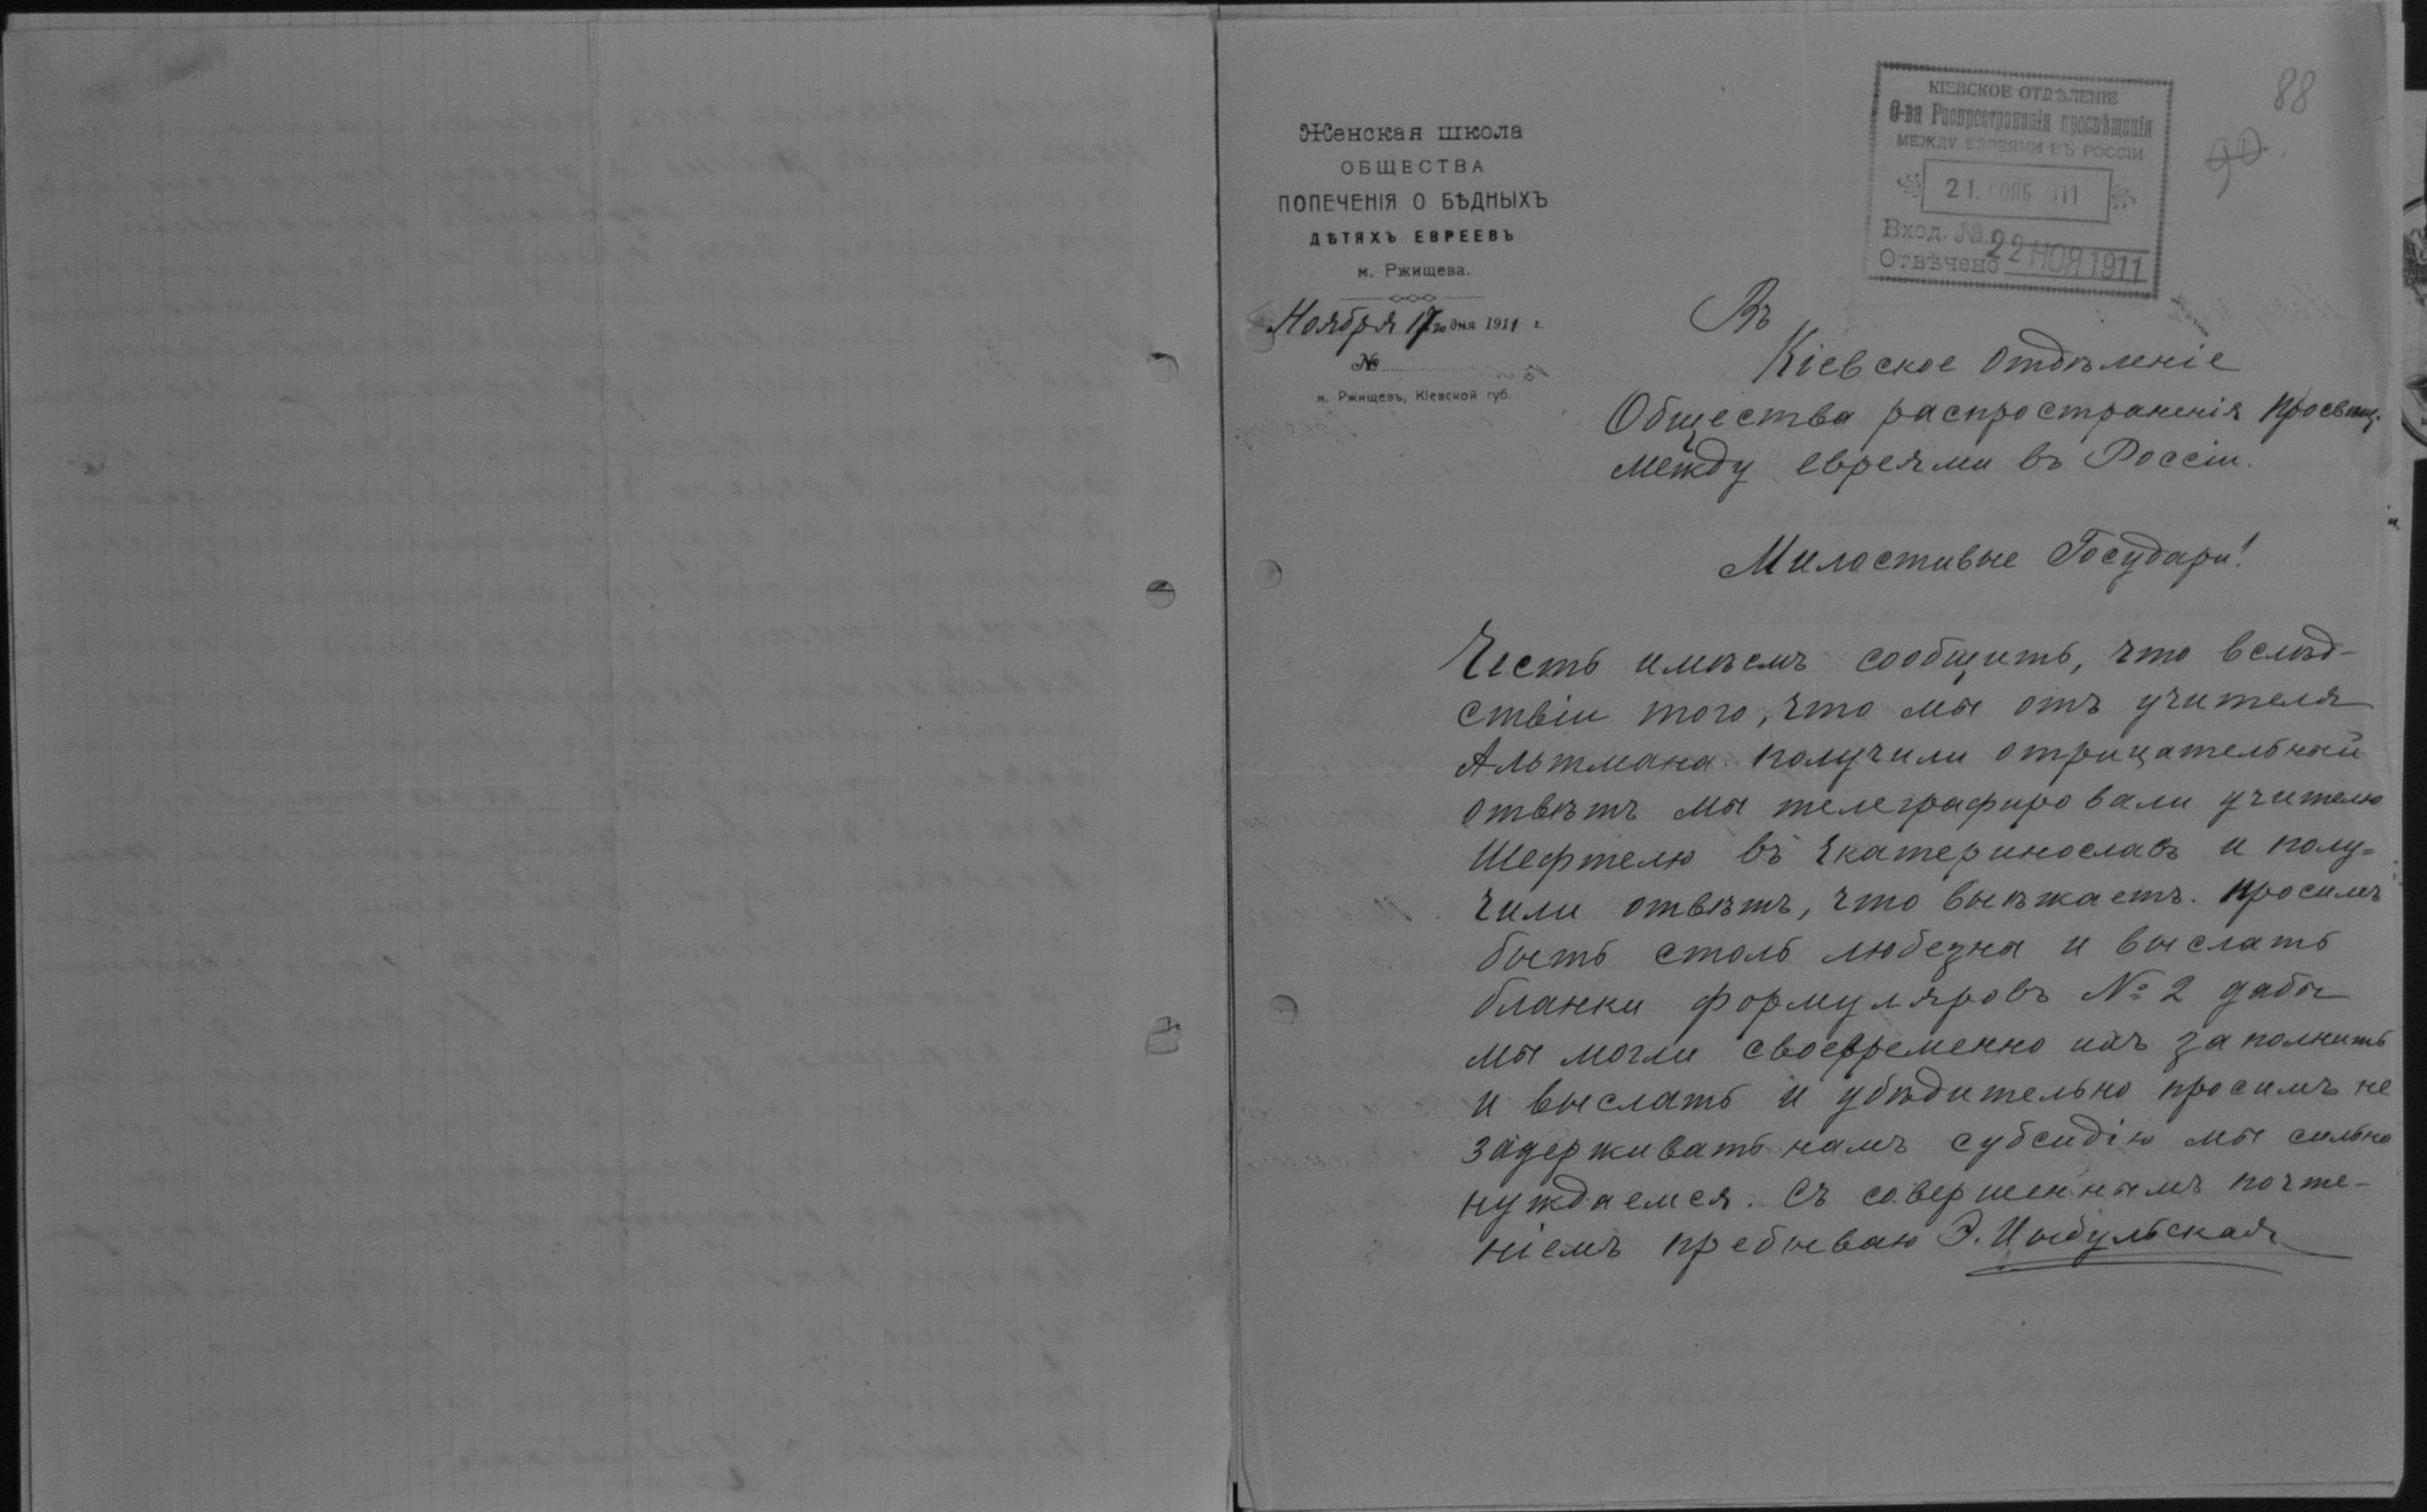 88
90.
КІЕВСКОЕ ОТДѢЛЕНІЕ
О-ва Распространенія просвѣщенія
МЕЖДУ ЕВРЕЯМИ ВЪ РОССІИ
21. НОЯБ 911
Вход. №
Отвѣчено 22 НОЯ 1911
Женская школа
ОБЩЕСТВА
ПОПЕЧЕНІЯ О БѢДНЫХЪ
ДѢТЯХЪ ЕВРЕЕВЪ
м. Ржищева.
Ноября 17го дня 1911 г.
№
м. Ржищевъ, Кіевской губ.
Въ
Кіевское Отдѣленіе
Общества распространенія Просвѣщ.
между евреями въ Россіи.
Милостивые Государи!
Честь имѣемъ сообщить, что вслѣд-
ствіи того, что мы отъ учителя
Альтмана получили отрицательный
отвѣтъ мы телеграфировали учителю
Шефтелю въ Екатеринославъ и полу=
чили отвѣтъ, что выѣжаетъ. Просимъ
быть столь любезна и выслать
бланки формуляровъ № 2 дабы
мы могли своевременно ихъ заполнить
и выслать и убѣдительно просимъ не
задерживать намъ субсидію мы сильно
нуждаемся. Съ совершеннымъ почте-
ніемъ пребываю Э. Цыбульская